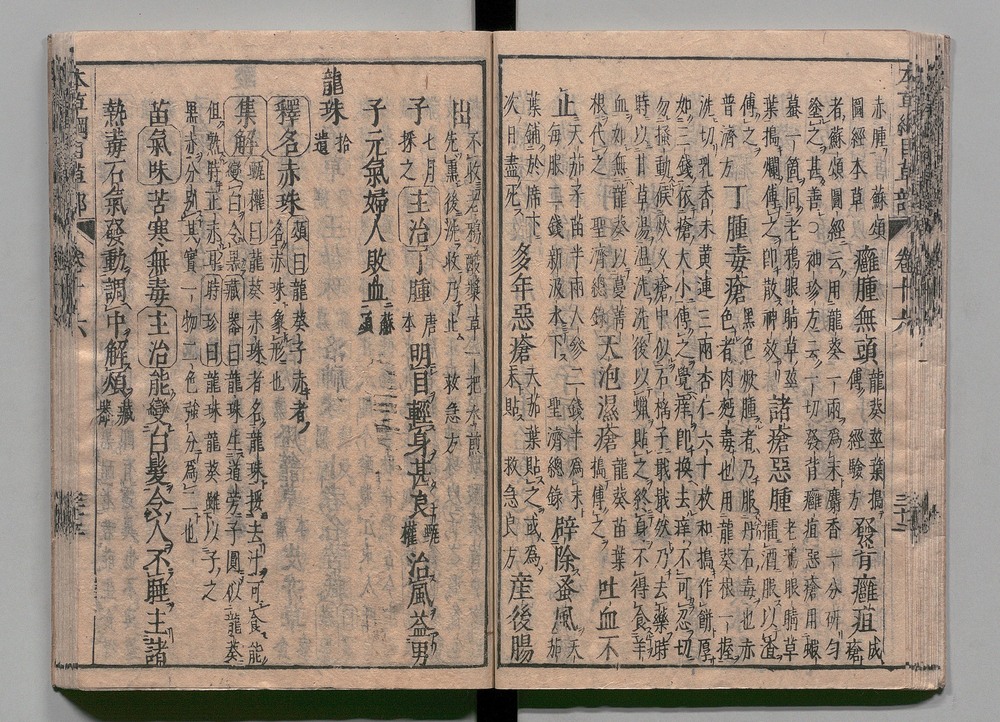 赤腫蘇頌 癰腫無頭龍葵莖葉搗傅 發背癰疽成瘡
圖經本草
者蘇頌圖經云用龍葵一兩為末麝香一分研勻
塗之甚善 神珍方云一切發背癰疽惡瘡用蝦
蟇一箇同老鴉眼睛草莖
葉搗爛傅之即散神效 諸瘡惡腫老鴉眼睛草擂酒服以渣
傅之
普濟方 丁腫毒瘡黑色焮腫者乃服丹石毒也赤色者肉麪毒也用龍葵根一握
洗切乳香末黃連三兩杏仁六十枚和搗作餅厚
如三錢依瘡大小傅之覺痒即換去痒不可忍切
勿搔動候炊久瘡中似石榴子戢戢然乃去藥時
時以甘草湯溫洗洗後以蠟貼之終身不得食羊
血如無龍葵以蔓菁
根代之 聖濟總錄 天泡濕瘡龍葵苗葉搗傅之 吐血不
止天茄子苗半兩人參二錢半為末每服二錢新汲水下 聖濟總錄 辟除蚤虱天茄
葉鋪於席下
次日盡死 多年惡瘡天茄葉貼之或為末貼 救急良方 產後腸
出
先熏後洗收乃止 救急方
子七月採之 主治丁腫唐本 明目輕身甚良甄權 治風益男
子元氣婦人敗血蘇頌
龍珠拾遺
釋名赤珠頌曰龍葵子赤者名赤珠象形也
集解甄權曰龍葵赤珠者名龍珠挼去汁可食能變白令黑藏器曰龍珠生道旁子圓似龍葵
但熟時正赤時珍曰龍珠龍葵雖以子之
黑赤分別其實一物二色強分為二也
苗氣味苦寒無毒主治能變白髮令人不睡主諸
熱毒石氣發動調中解煩藏器
本草綱目草部 卷十六